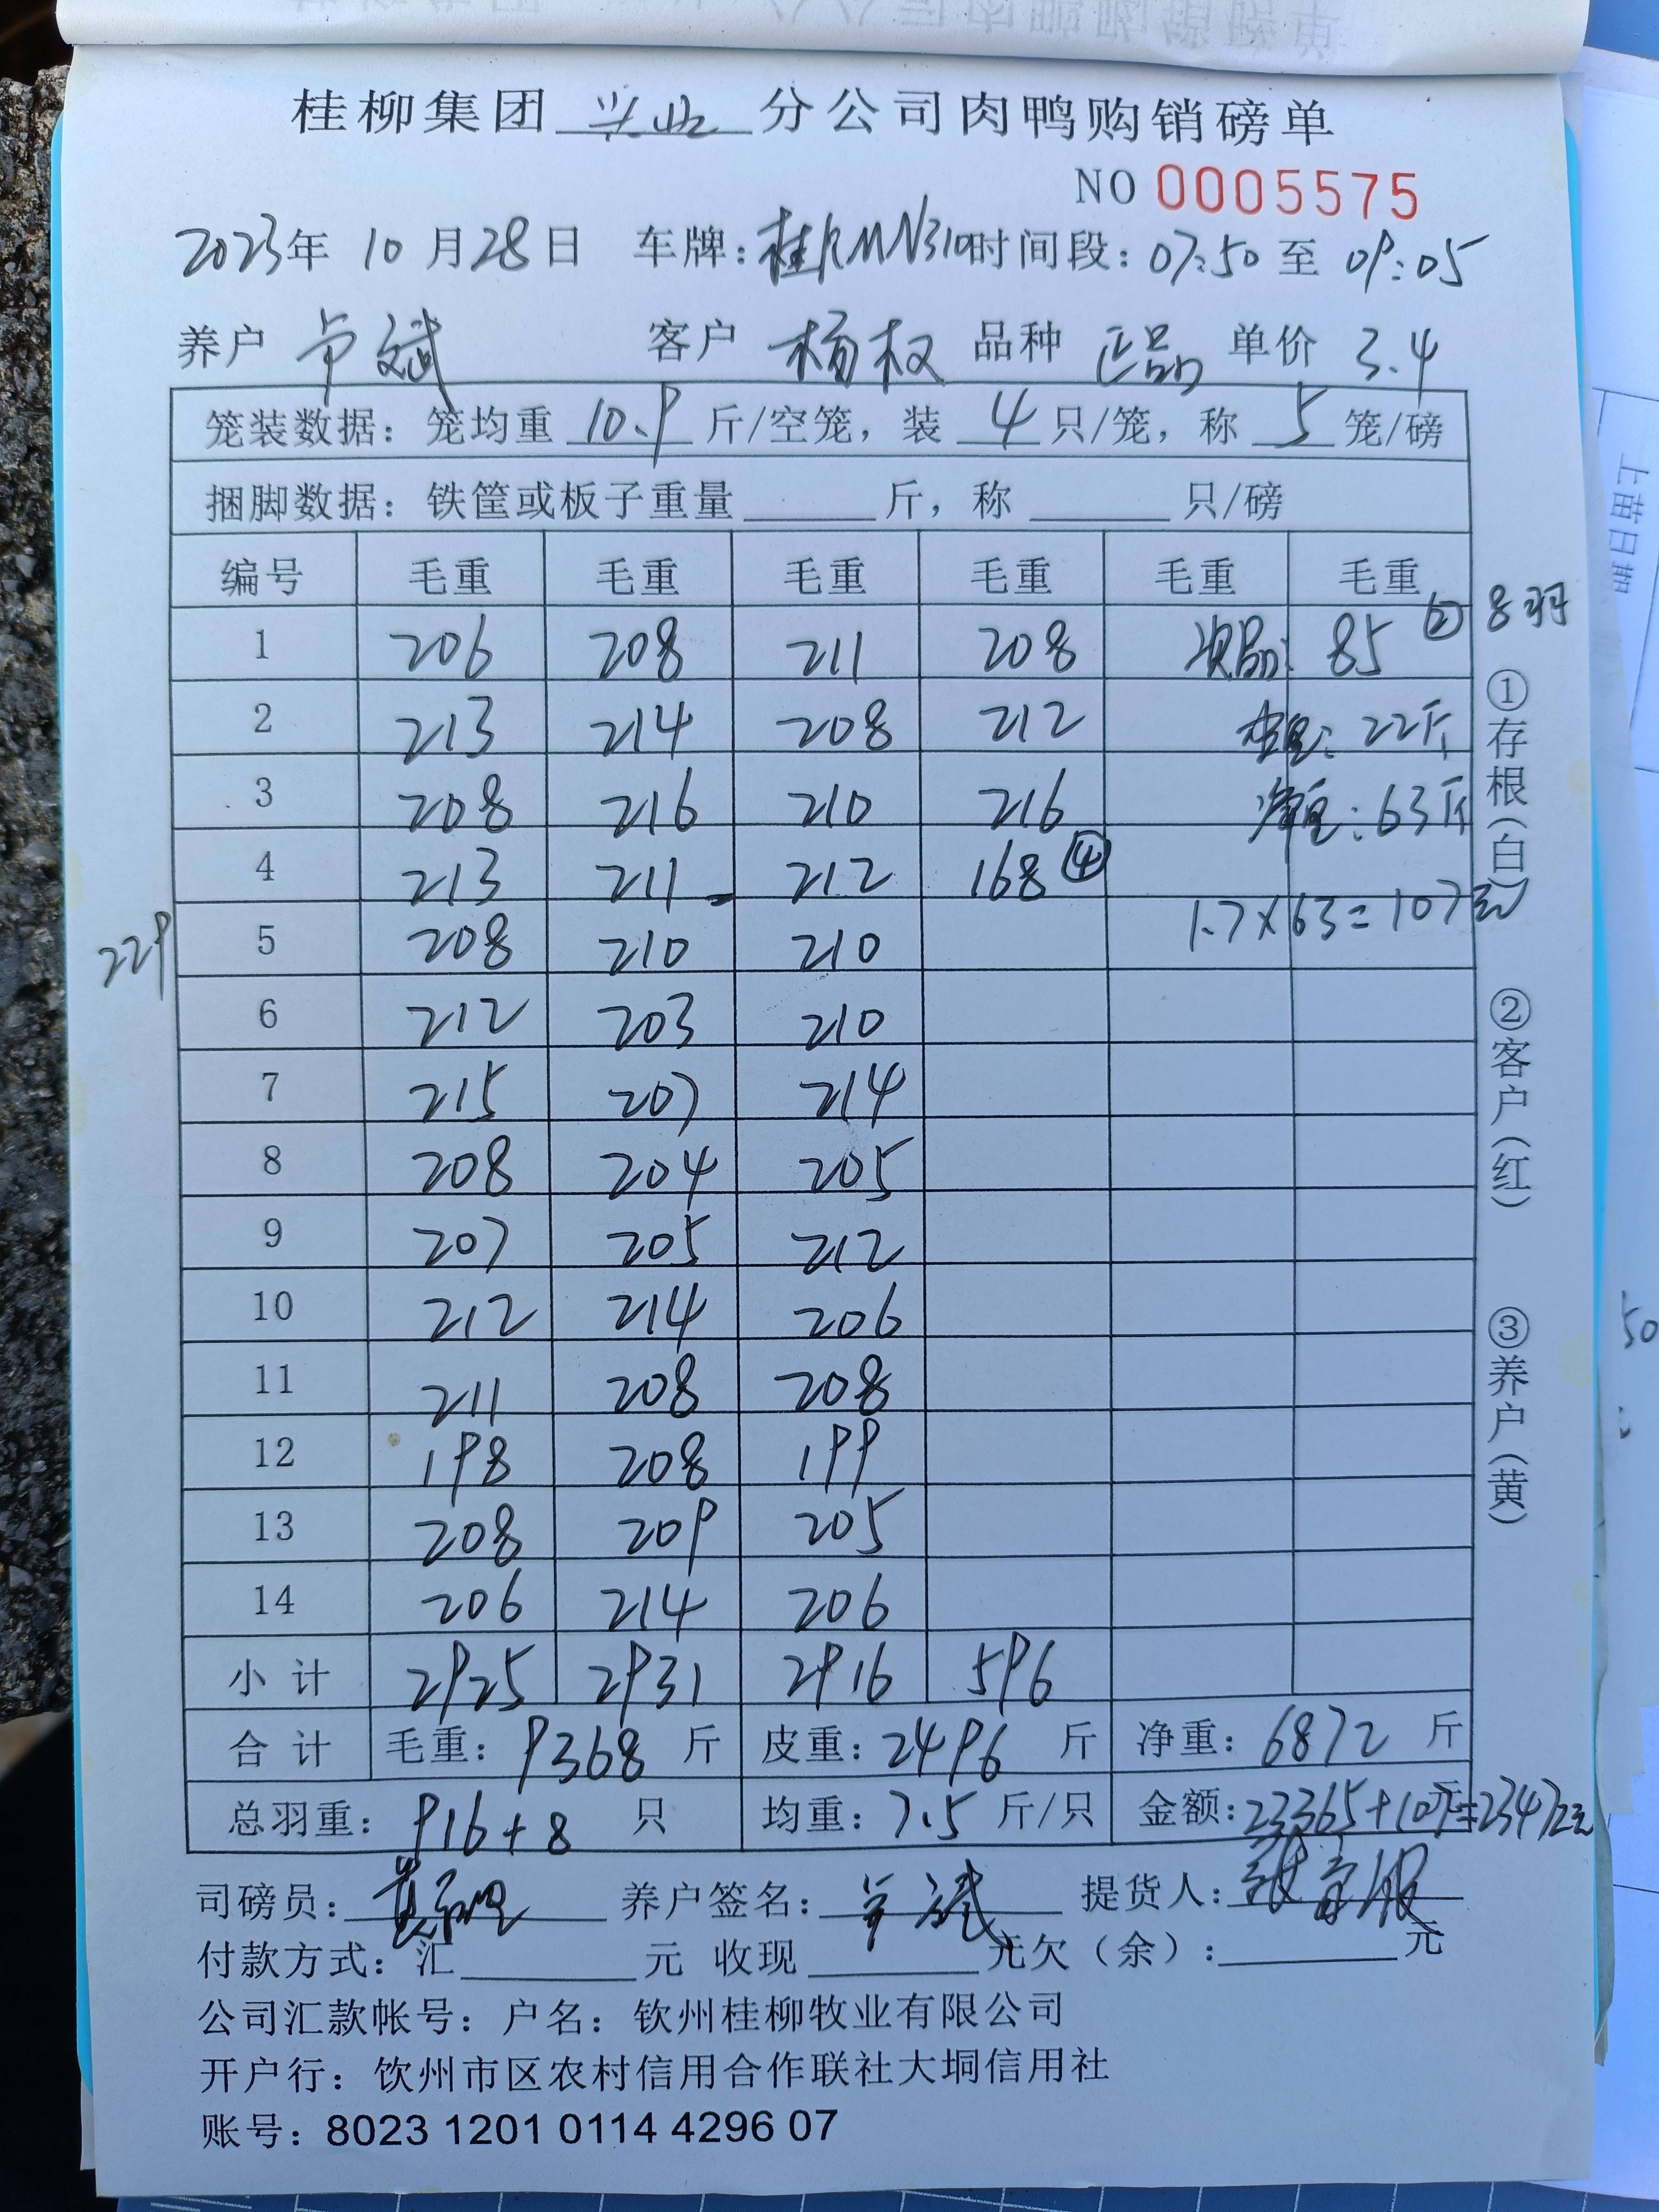 桂柳集团 兴业 分公司肉鸭购销磅单
NO 0005575
2023年 10月28日 车牌:桂KMN310时间段:07:50至09:05
养户 卢斌 客户 杨权 品种 正品 单价 3.4
笼装数据:笼均重 10.9 斤/空笼,装 4 只/笼,称 5 笼/磅
捆脚数据:铁筐或板子重量 斤,称 只/磅
编号 毛重 毛重 毛重 毛重 毛重 毛重
1 206 208 211 208 次品: 85 ② 8羽
2 213 214 208 212 皮重: 22斤
3 208 216 210 216 净重: 63斤
4 213 211 212 168 ④
1.7×63=107元
229 5 208 210 210
6 212 203 210
7 215 207 214
8 208 204 205
9 207 205 212
10 212 214 206
11 211 208 208
12 198 208 199
13 208 209 205
14 206 214 206
小计 2925 2931 2916 596
合计 毛重: 9368 斤 皮重: 2496 斤 净重: 6872 斤
总羽重: 916+8 只 均重: 7.5 斤/只 金额: 23365+107=23472元
司磅员: 养户签名: 卢斌 提货人:
付款方式:汇 元 收现 元欠(余): 元
公司汇款帐号:户名:钦州桂柳牧业有限公司
开户行:钦州市区农村信用合作联社大垌信用社
账号:8023 1201 0114 4296 07
①存根(白)
②客户(红)
③养户(黄)
上苗日期
50